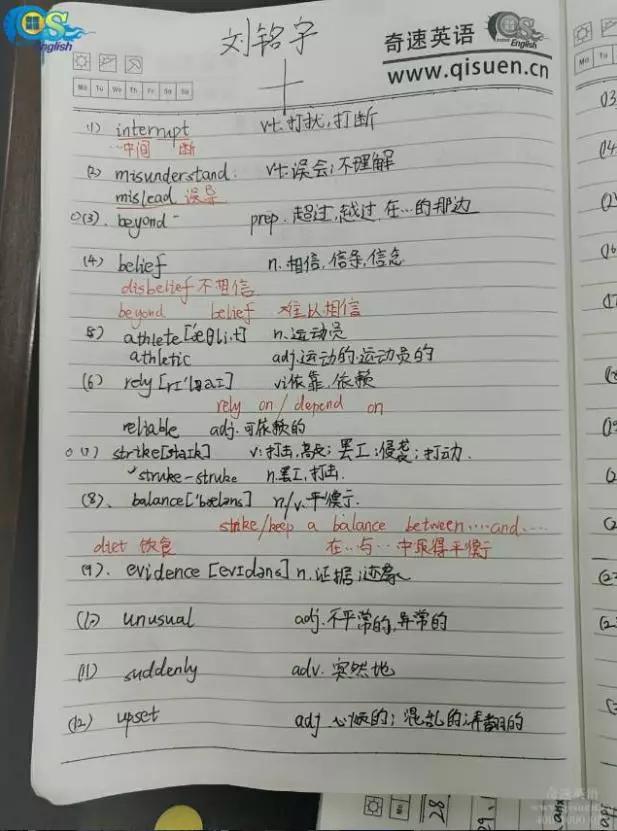 QS English
刘铭宇
奇速英语 QS English
www.qisuen.cn
Mo Tu We Th Fr Sa Su
(1) interrupt vt.打扰,打断
…中间 断
(2) misunderstand. vt.误会;不理解
mislead 误导
(3). beyond prep. 超过,越过,在…的那边
(4) belief n.相信,信条,信念
disbelief 不相信
beyond belief 难以相信
5) athlete n.运动员
athletic adj.运动的.运动员的
(6) rely vi依靠,依赖
rely on / depend on
reliable adj.可依赖的
(7) strike v:打击, 罢工;侵袭;打动.
struke-struke n.罢工,打击.
(8)、balance n/v.平衡
strike/keep a balance between……and……
diet 饮食 在…与…中取得平衡
(9)、evidence n.证据;迹象
unusual adj.不平常的,异常的
(11) suddenly adv. 突然地
(12) upset adj 心烦的;混乱的;弄翻的
03
04
28
29
奇速英语